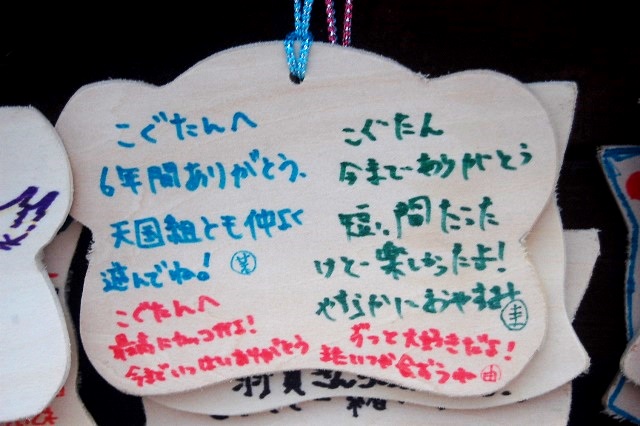 こぐたんへ
6年間ありがとう、
天国組とも仲よく
遊んでね!
こぐたん
今までありがとう
短い間だった
けど楽しかったよ!
やすらかにおやすみ
こぐたんへ
最高にカッコカワよ!
今までいっぱいありがとう
ずっと大好きだよ!
またいつか会おうね
由